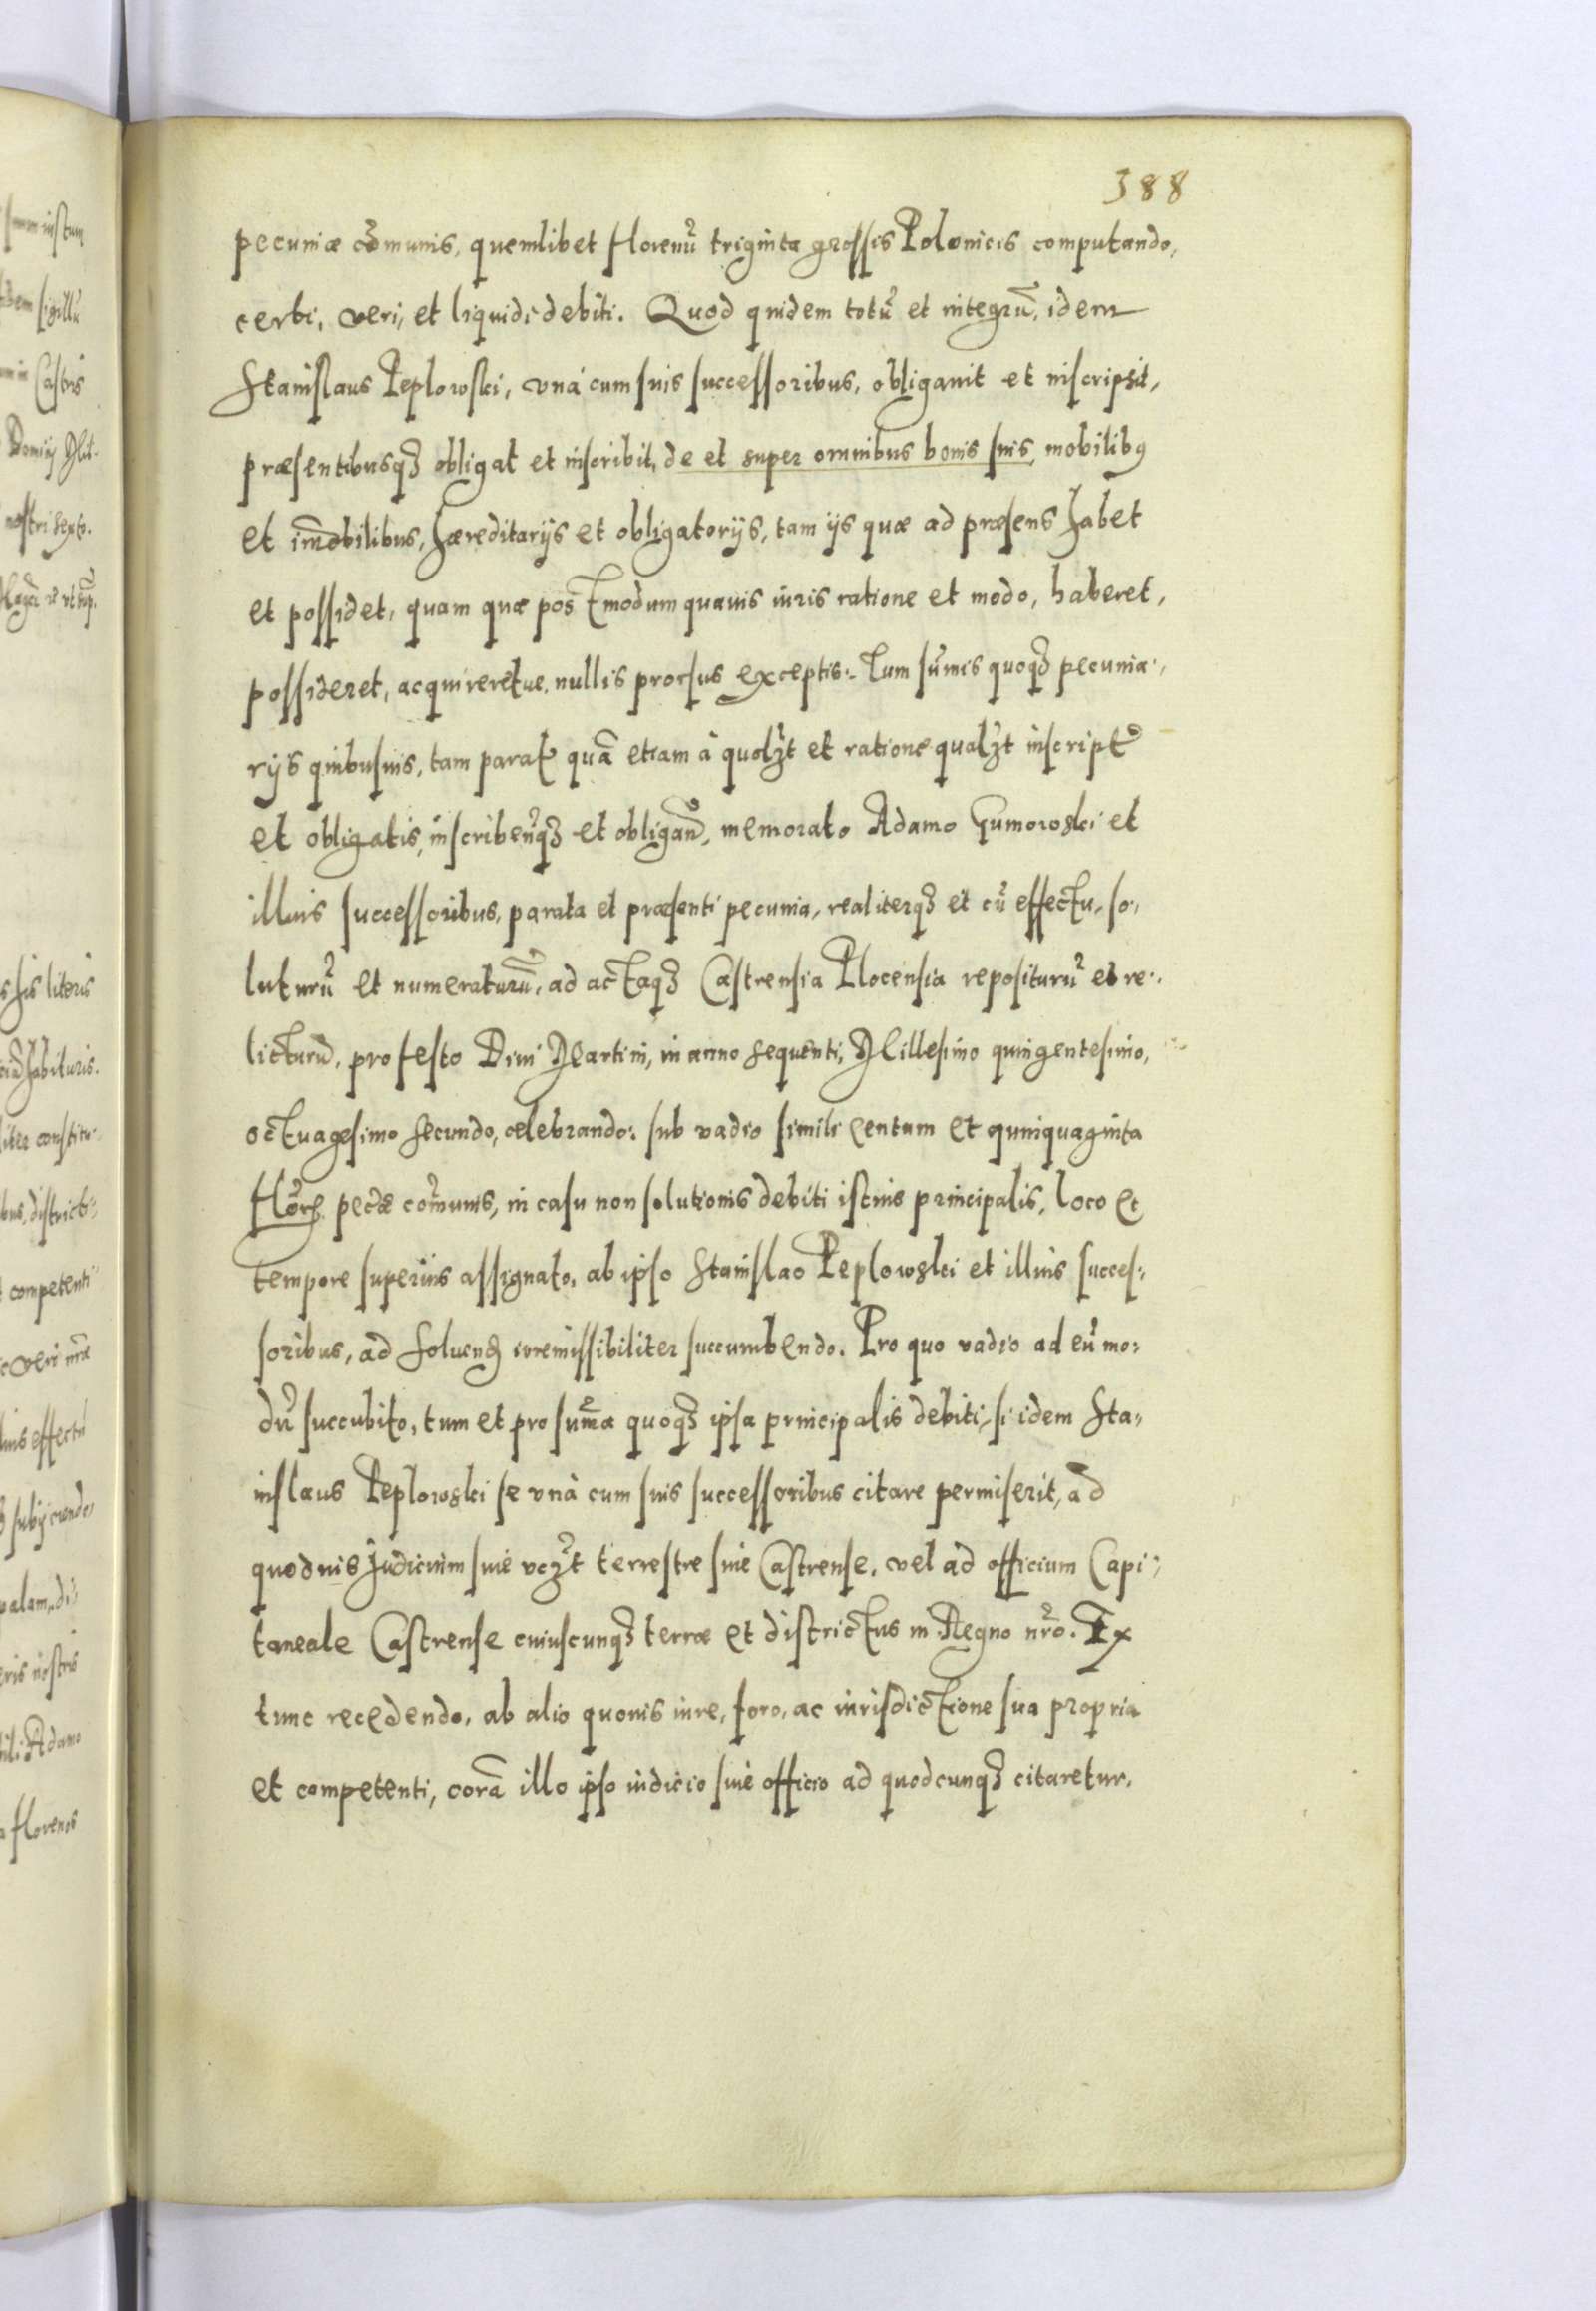 388
pecuniæ cõmunis, quemlibet florenũ triginta grossis Polonicis computando,
certi, veri, et liquidi debiti. Quod quidem totũ et integrũ, idem
Stanislaus Peplowski, vnà cum suis successoribus, obligauit et inscripsit,
præsentibusqȝ obligat et inscribit, de et super omnibus bonis suis, mobilibꝰ
et im̃obilibus, hæreditarijs et obligatorijs, tam ijs quæ ad præsens habet
et possidet, quam quæ postmodum quauis iuris ratione et modo, haberet,
possideret, acquireretue, nullis prorsus exceptis: Tum sum̃is quoqȝ pecunia:
rijs quibusuis, tam parat̃ quã etiam à quolȝt et ratione qualȝt inscript̃
et obligatis, inscribeñqȝ et obligañd, memorato Adamo Gumowski et
illius successoribus, parata et præsenti pecunia, realiterqȝ et cũ effectu, so:
luturũ et numeraturũ, ad actaqȝ Castrensia Plocensia repositurũ et re:
licturũ, pro festo Diui Martini, in anno sequenti, Millesimo quingentesimo,
octuagesimo secundo, celebrando: sub vadio simili centum et quinquaginta
florẽ. pecũæ com̃unis, in casu non solutionis debiti istius principalis, loco et
tempore superius assignato, ab ipso Stanislao Peplowski et illius succes:
soribus, ad soluenđ irremissibiliter succumbendo. Pro quo vadio ad eũ mo:
dũ succubito, tum et pro sum̃a quoqȝ ipsa principalis debiti, si idem Sta:
nislaus Peplowski se vnà cum suis successoribus citare permiserit, ad
quoduis Judicium siue vcȝt terrestre siue Castrense, vel ad officium Capi:
taneale Castrense cuiuscunqȝ terræ et districtus in Regno nr̃o. Ex
tunc recedendo, ab alio quouis iure, foro, ac iurisdictione sua propria
et competenti, corã illo ipso iudicio siue officio ad quodcunqȝ citaretur,